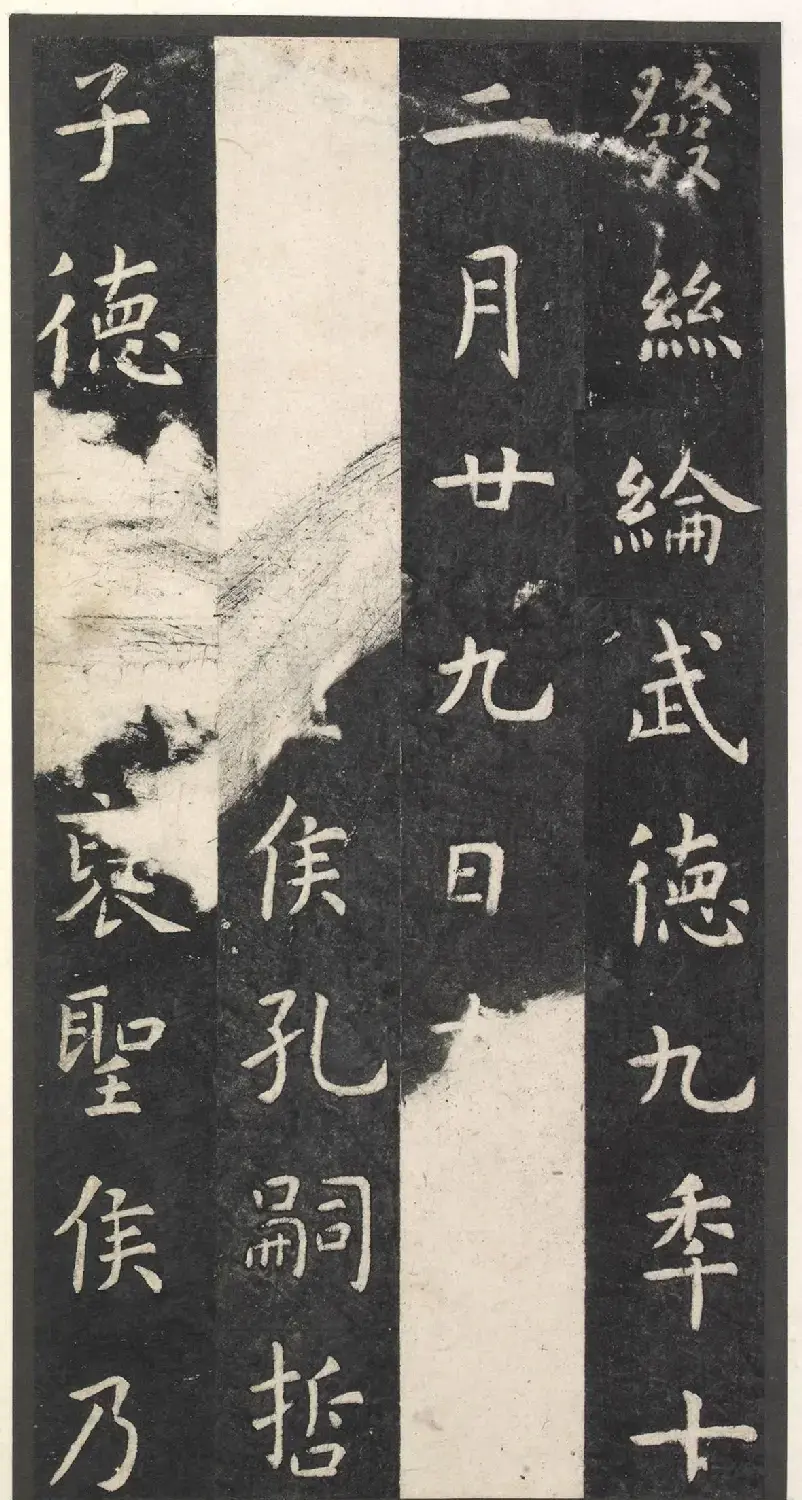 發絲綸武德九秊十
二月廿九日
侯孔嗣哲
子德襃聖侯乃